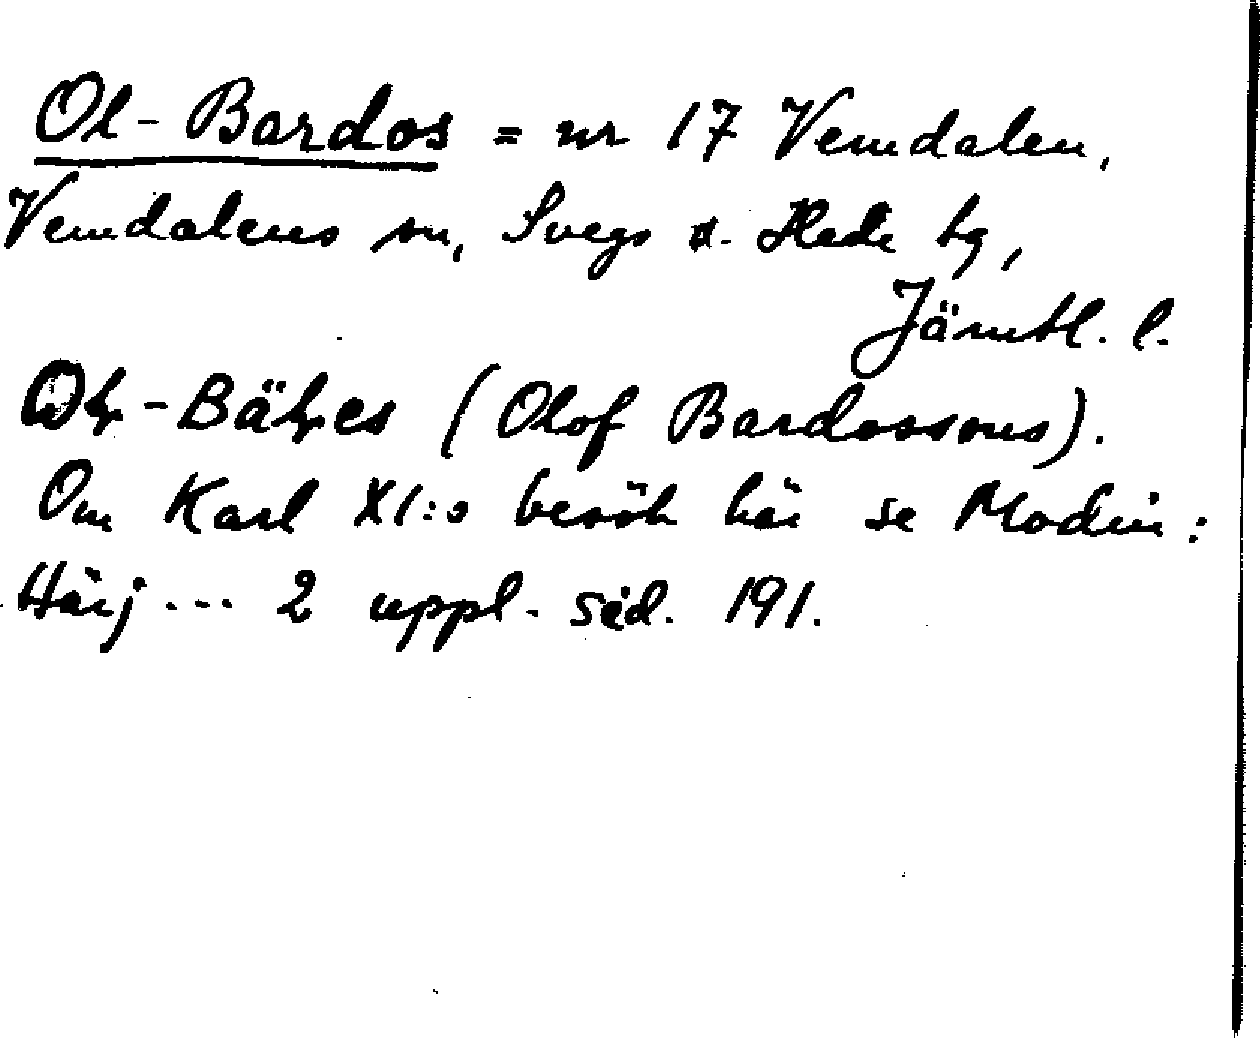 Ol-Bardos = nr 17 Vemdalen,
Vemdalens sn, Svegs o. Hede tg,
Jämtl. l.
(Olof Bardossons).
Om Karl XI:s besök här se Modin:
Härj... 2 uppl. sid. 191.